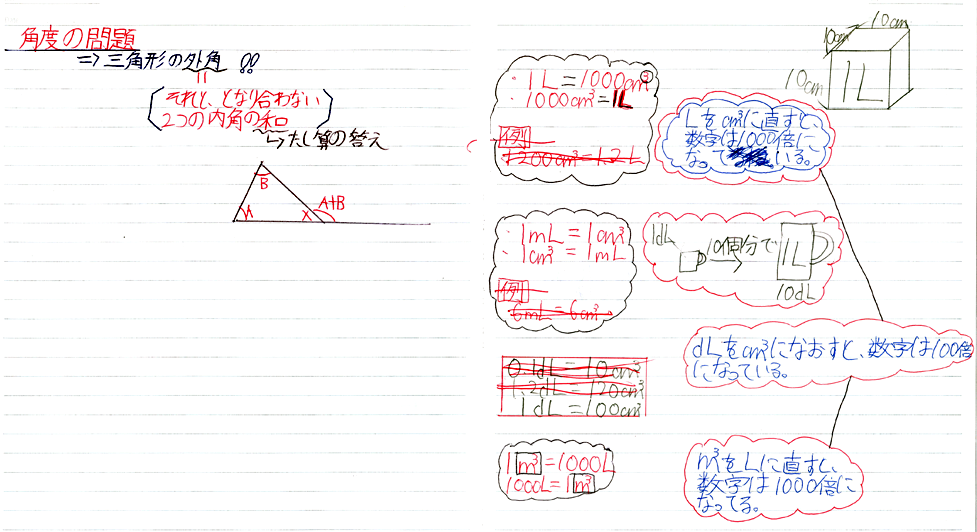 角度の問題
⇒三角形の外角!!
〃
それと、となり合わない
2つの内角の和
↳たし算の答え
B
A
X
A+B
10cm
10cm
10cm
1L
・1L=1000cm³
・1000cm³=1L
例
1200cm³=1.2L
Lをcm³に直すと、
数字は1000倍に
なって いる。
・1mL=1cm³
・1cm³=1mL
例
6mL=6cm³
1dL
10個分で
→
1L
10dL
dLをcm³になおすと、数字は100倍
になっている。
0.1dL=10cm³
1.2dL=120cm³
1dL=100cm³
1m³=1000L
1000L=1m³
m³をLに直すし、
数字は1000倍に
なってる。